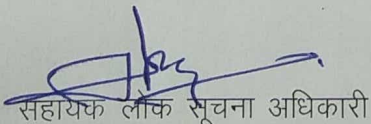 सहायक लोक सूचना अधिकारी